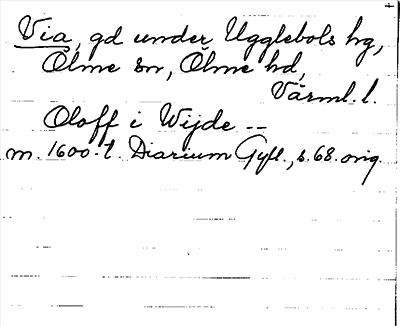 Via, gd under Ugglebols hg,
Ölme sn, Ölme hd,
Värml. l.
Oloff i Wijde --
m. 1600-t. Diarium Gyll., s. 68. orig.